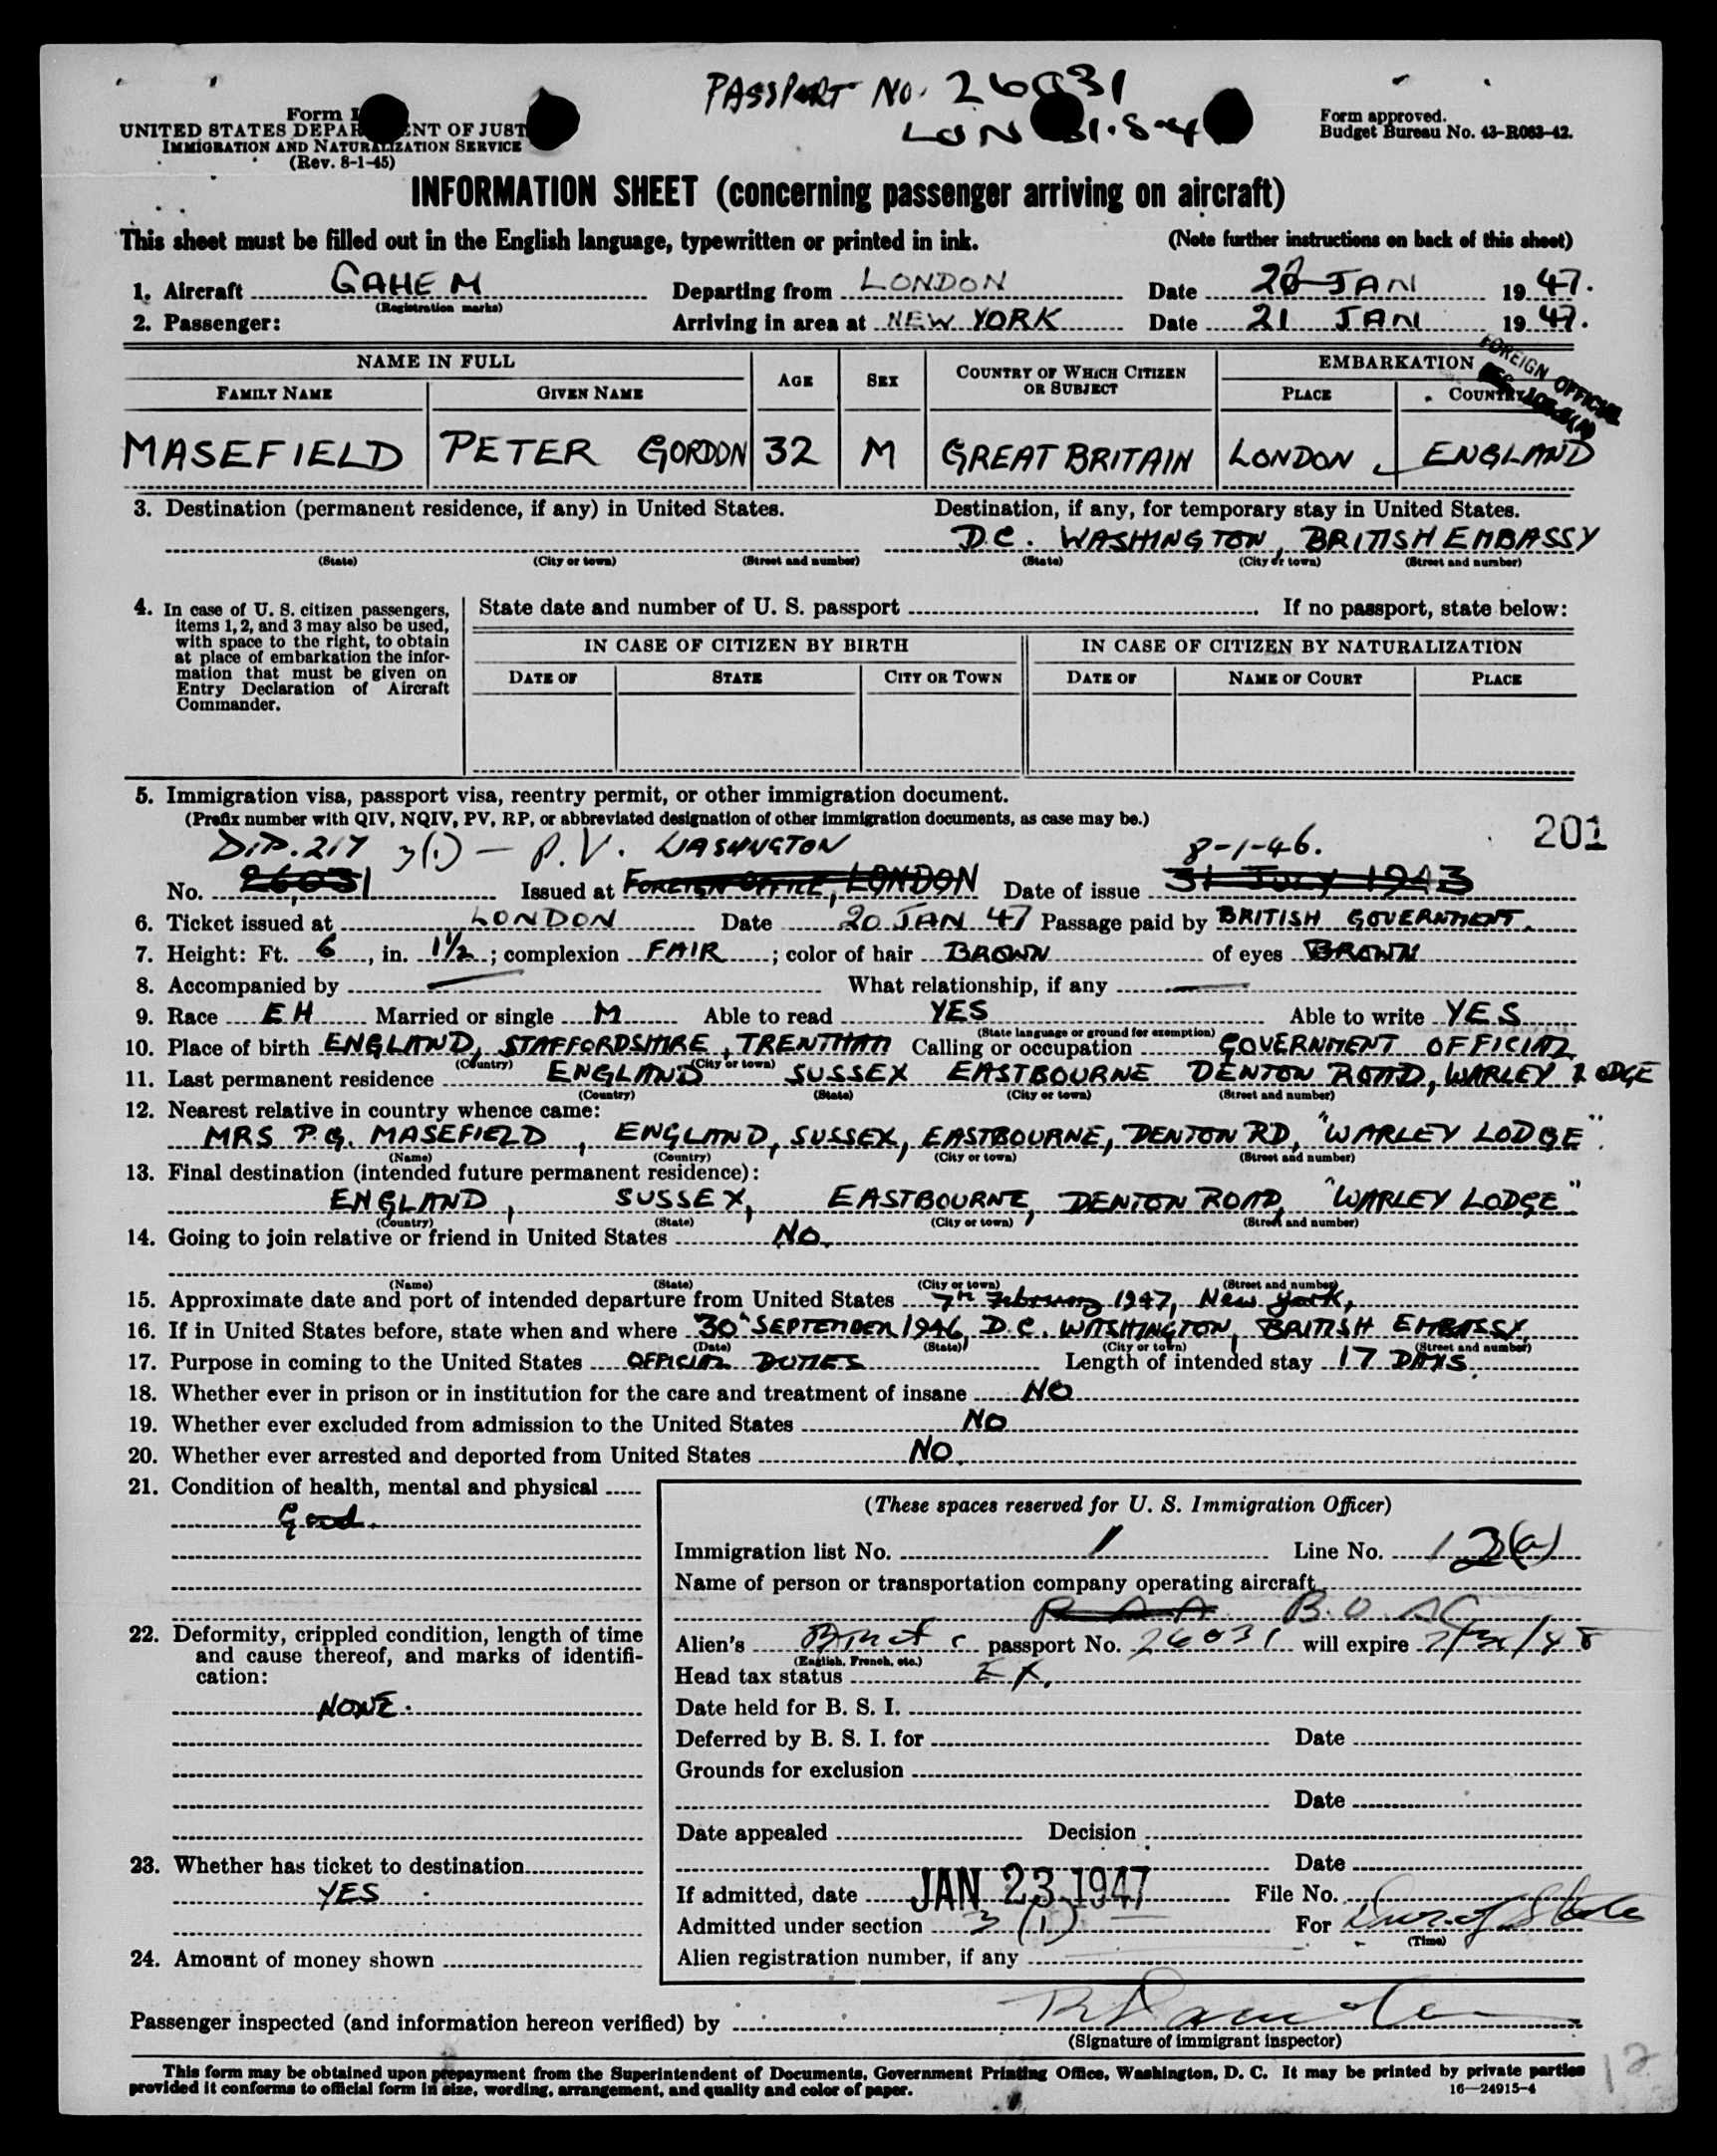 PASSPORT NO. 26031
LON 31.8.4
Form I
UNITED STATES DEPAR ENT OF JUST
IMMIGRATION AND NATURALIZATION SERVICE
(Rev. 8-1-45)
Form approved.
Budget Bureau No. 43-R063-42.
INFORMATION SHEET (concerning passenger arriving on aircraft)
This sheet must be filled out in the English language, typewritten or printed in ink. (Note further instructions on back of this sheet)
1. Aircraft GAHEM Departing from LONDON Date JAN 1947.
(Registration marks)
2. Passenger: Arriving in area at NEW YORK Date 21 JAN 1947.
NAME IN FULL AGE SEX COUNTRY OF WHICH CITIZEN OR SUBJECT EMBARKATION
FAMILY NAME GIVEN NAME PLACE COUNTRY
FOREIGN OFFICIAL
MASEFIELD PETER GORDON 32 M GREAT BRITAIN LONDON ENGLAND
3. Destination (permanent residence, if any) in United States. Destination, if any, for temporary stay in United States.
D.C. WASHINGTON, BRITISH EMBASSY
(State) (City or town) (Street and number) (State) (City or town) (Street and number)
4. In case of U. S. citizen passengers, items 1, 2, and 3 may also be used, with space to the right, to obtain at place of embarkation the information that must be given on Entry Declaration of Aircraft Commander.
State date and number of U. S. passport If no passport, state below:
IN CASE OF CITIZEN BY BIRTH IN CASE OF CITIZEN BY NATURALIZATION
DATE OF STATE CITY OR TOWN DATE OF NAME OF COURT PLACE
5. Immigration visa, passport visa, reentry permit, or other immigration document.
(Prefix number with QIV, NQIV, PV, RP, or abbreviated designation of other immigration documents, as case may be.) 201
DIP. 217 3(1) — P.V. WASHINGTON 8-1-46.
No. 26031 Issued at FOREIGN OFFICE, LONDON Date of issue 31 JULY 1943
6. Ticket issued at LONDON Date 20 JAN 47 Passage paid by BRITISH GOVERNMENT.
7. Height: Ft. 6, in. 1½; complexion FAIR; color of hair BROWN of eyes BROWN
8. Accompanied by — What relationship, if any —
9. Race EH Married or single M Able to read YES Able to write YES
(State language or ground for exemption)
10. Place of birth ENGLAND, STAFFORDSHIRE, TRENTHAM Calling or occupation GOVERNMENT OFFICIAL
(Country) (City or town)
11. Last permanent residence ENGLAND SUSSEX EASTBOURNE DENTON ROAD, WARLEY LODGE
(Country) (State) (City or town) (Street and number)
12. Nearest relative in country whence came:
MRS P.G. MASEFIELD, ENGLAND, SUSSEX, EASTBOURNE, DENTON RD, "WARLEY LODGE".
(Name) (Country) (City or town) (Street and number)
13. Final destination (intended future permanent residence):
ENGLAND, SUSSEX, EASTBOURNE, DENTON ROAD, "WARLEY LODGE"
(Country) (State) (City or town) (Street and number)
14. Going to join relative or friend in United States NO.
(Name) (State) (City or town) (Street and number)
15. Approximate date and port of intended departure from United States 7th February 1947, New York,
16. If in United States before, state when and where 30th SEPTEMBER 1946, D.C. WASHINGTON, BRITISH EMBASSY,
(Date) (State) (City or town) (Street and number)
17. Purpose in coming to the United States OFFICIAL DUTIES Length of intended stay 17 DAYS.
18. Whether ever in prison or in institution for the care and treatment of insane NO
19. Whether ever excluded from admission to the United States NO
20. Whether ever arrested and deported from United States NO.
21. Condition of health, mental and physical
Good.
22. Deformity, crippled condition, length of time and cause thereof, and marks of identification:
NONE.
23. Whether has ticket to destination
YES
24. Amount of money shown
(These spaces reserved for U. S. Immigration Officer)
Immigration list No. 1 Line No. (a)
Name of person or transportation company operating aircraft
B.O.AC
Alien's passport No. 26031 will expire
(English, French, etc.)
Head tax status EX.
Date held for B. S. I.
Deferred by B. S. I. for Date
Grounds for exclusion
Date
Date appealed Decision
Date
If admitted, date JAN 23 1947 File No.
Admitted under section 3 (1) For Dur. of Status
(Time)
Alien registration number, if any
Passenger inspected (and information hereon verified) by
(Signature of immigrant inspector)
This form may be obtained upon prepayment from the Superintendent of Documents, Government Printing Office, Washington, D. C. It may be printed by private parties
provided it conforms to official form in size, wording, arrangement, and quality and color of paper. 16—24915-4
12